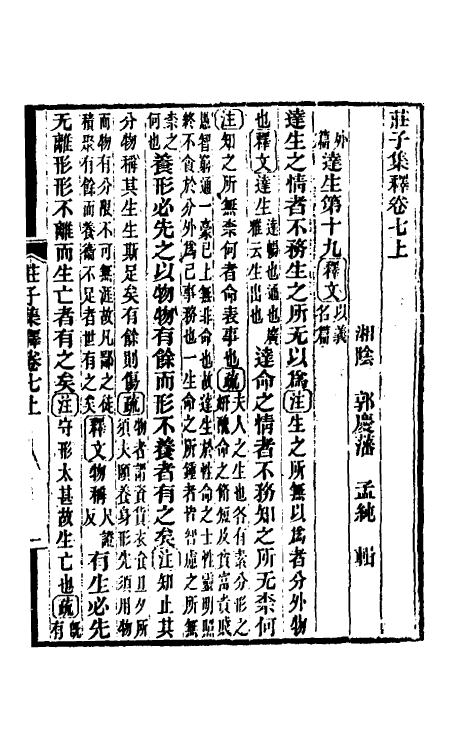 莊子集釋卷七上
湘陰　郭慶藩　孟純　輯
外篇達生第十九釋文以義名篇
達生之情者不務生之所无以爲注生之所無以爲者分外物
也釋文達生達暢也通也廣雅云生出也達命之情者不務知之所无柰何
注知之所無柰何者命表事也疏夫人之生也各有素分形之妍醜命之脩短及貧富貴賤
愚智窮通一豪已上無非命也故達生於性命之士性靈明照終不貪於分外爲己事務也一生命之所鍾者皆智慮之所無
柰之何也養形必先之以物物有餘而形不養者有之矣注知止其
分物稱其生生斯足矣有餘則傷疏物者謂資貨衣食旦夕所須夫頤養身形先須用物
而物有分限不可無涯故凡鄙之徒積聚有餘而養衞不足者世有之矣釋文物稱尺證反有生必先
无離形形不離而生亡者有之矣注守形太甚故生亡也疏既有
莊子集釋卷七上
一